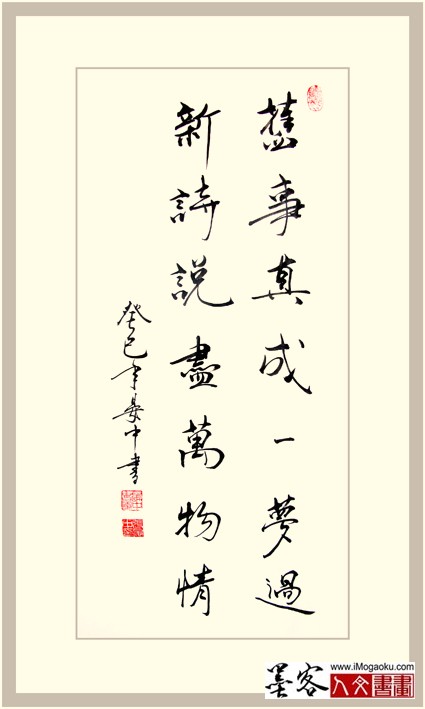 舊事真成一夢過
新詩說盡萬物情
癸巳 中書
墨客
www.iMogaoku.com
人文書畫